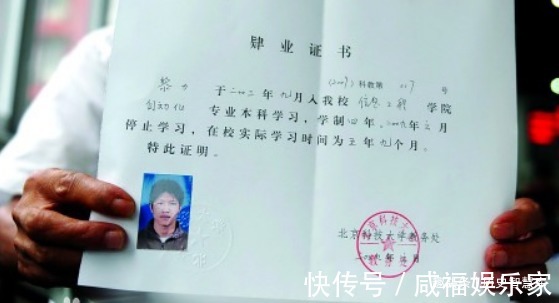 肄业证书
(2009)科教第 017 号
黎力 于二〇〇二年九月入我校 信息工程 学院
自动化 专业本科学习，学制四年。二〇〇九年三月
停止学习，在校实际学习时间为五年九个月。
特此证明。
北京科技大学教务处
快传号／咸福娱乐家